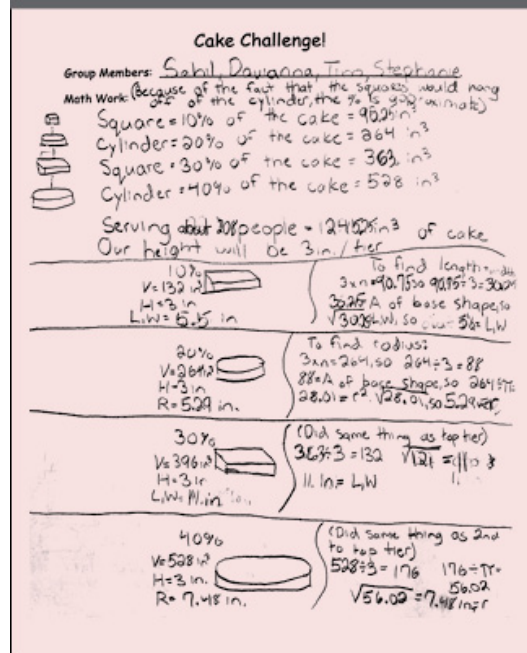 Cake Challenge!
Group Members: Sahil, Dawanna, Tino, Stephanie
Math Work: (Because of the fact that, the squares would hang
off of the cylinder, the % is approximate)
Square = 10% of the cake = 90.75 in³
Cylinder = 20% of the cake = 264 in³
Square = 30% of the cake = 363 in³
Cylinder = 40% of the cake = 528 in³
Serving about 208 people = of cake
Our height will be 3 in./tier
10%
V = 132 in³
H = 3 in
L,W = 5.5 in
To find length + width
3xn = 90.75 so 90.75÷3 = 30.25
30.25 = A of base shape, so
√30.25 = L,W, so = L,W
20%
V = 264 in³
H = 3 in
R = 5.29 in.
To find radius:
3xn = 264, so 264÷3 = 88
88 = A of base shape, so 264÷π
28.01 = r². √28.01, so 5.29 = r
30%
V = 396 in³
H = 3 in
L,W = 11 in
(Did same thing as top tier)
363÷3 = 132 √121 =
11 in = L,W
40%
V = 528 in³
H = 3 in.
R = 7.48 in.
(Did same thing as 2nd
to top tier)
528÷3 = 176 176÷π =
56.02
√56.02 = 7.48 in = r